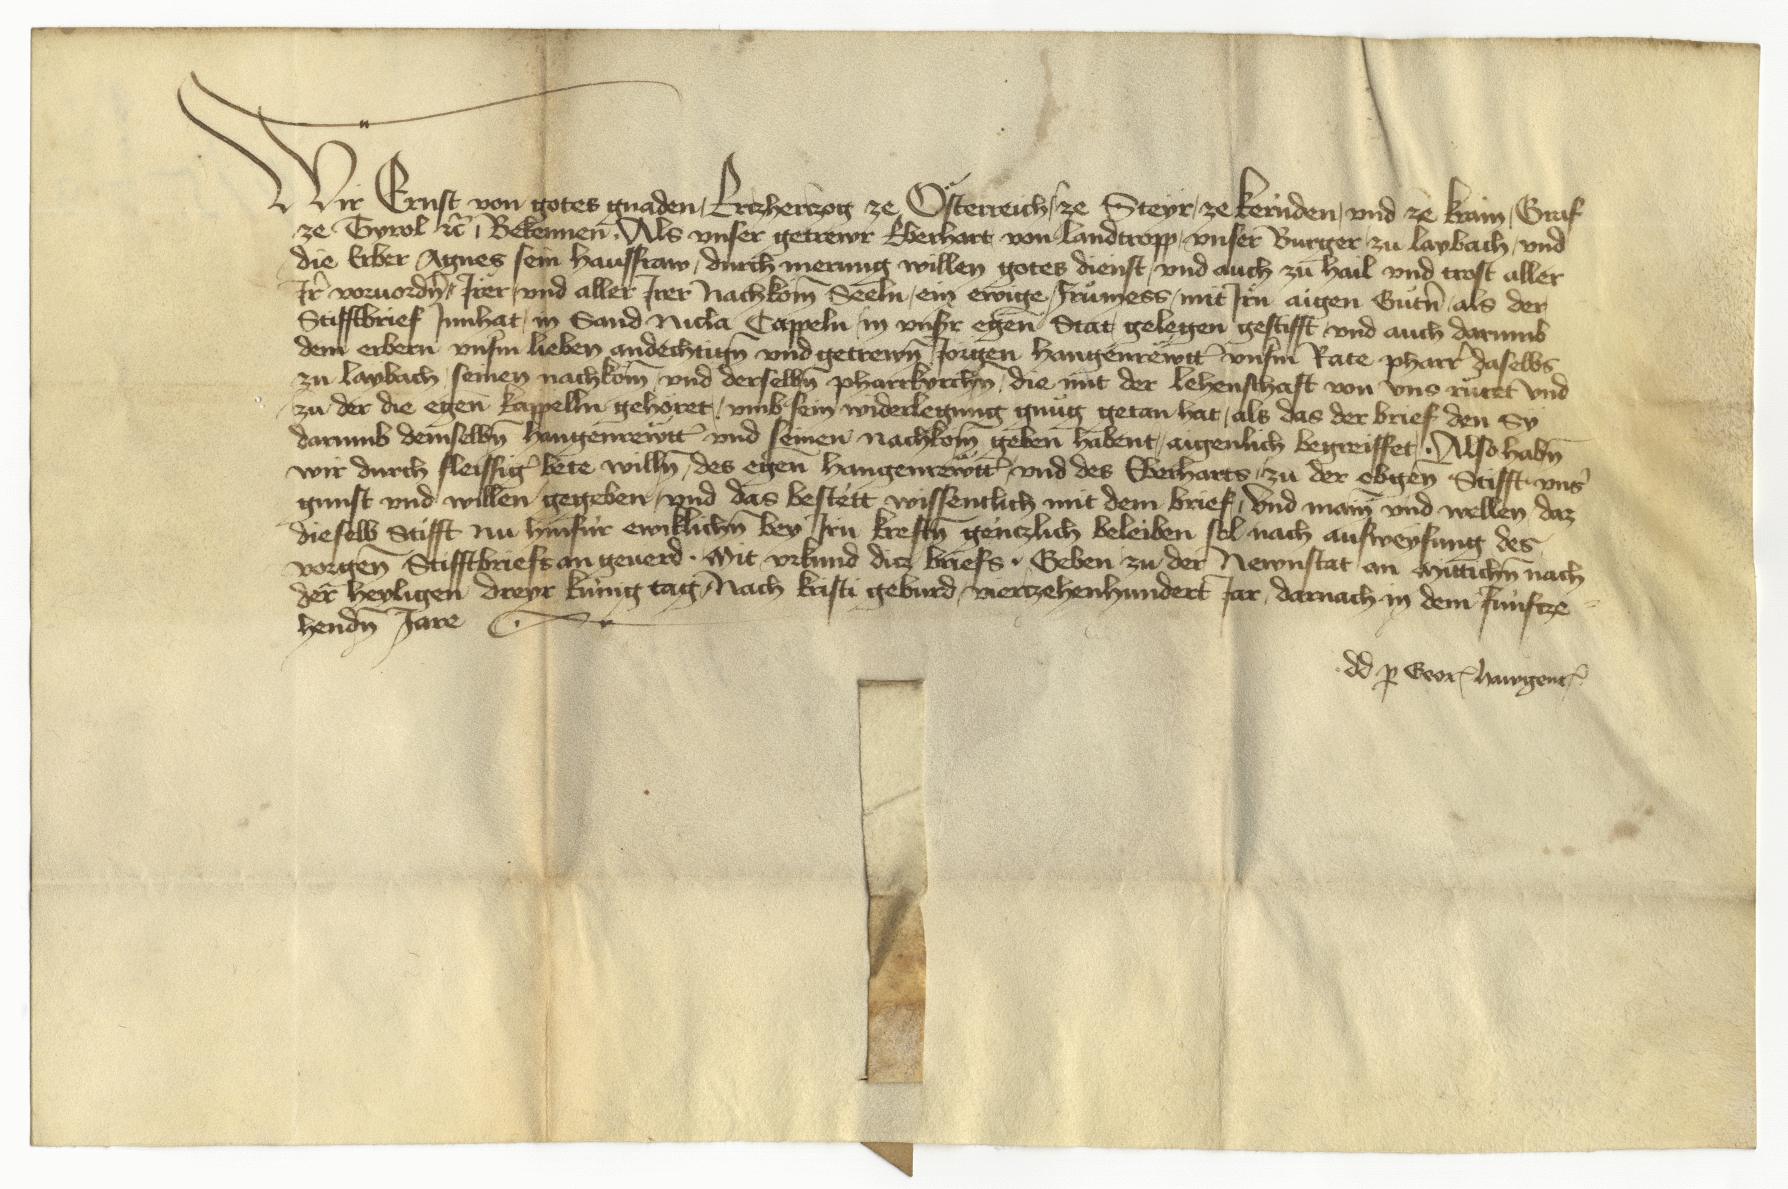 Wir Ernst von gotes gnaden / Ertzhertzog ze Österreich / ze Steyr / ze kernden / vnd ze krain / Graf
ze Tyrol ꝛc̄ / Bekennen̄ . Als vnser getrewr Eberhart von landtropp / vnser Burger zu laybach / vnd
die Erber Agnes sein hausfraw / durch merung willen gotes dienst / vnd auch zu hail vnd trost aller
Ir̄ voruordn̄ / Irer / vnd aller Irer Nachkom̄ Seeln / ein ewige / frůmess / mit Irn aigen Gůtn̄ / als der
Stifftbrief Innhat / in Sand Nicla Cappeln / in vnsr̄ egen̄ Stat / gelegen / gestifft vnd auch darumb
dem erbern vnsm̄ lieben andechtign̄ vnd getrewn̄ / Jörgen hangenrewtt̄ vnsm̄ Rate pharr̄ daselbs
zu laybach / seinen nachkom̄ / vnd derselbn̄ pharrkyrchn̄ / die mit der lehenschaft von vns růret vnd
zu der die egen̄ kappelln gehöret / vmb sein widerlegung gnůg getan hat / als das der brief den Sy
darumb demselbn̄ hangenrewtt̄ vnd seinen nachkom̄ geben habent / aigenlich begreiffet . Also habn̄
wir durch fleissiḡ bete willn̄ / des egen̄ hangenrewtt̄ / vnd des Eberharts / zu der obgen̄ Stifft vns̄
gunst vnd willen / gegeben / vnd das bestett wissentlich mit dem brief / vnd main̄ vnd wellen / daz
dieselb Stifft nu hinfür ewiklichn̄ bey Irn kreftn̄ gentzlich beleiben sol nach ausweysung des
vorgen̄ Stifftbriefs an geuerd . Mit vrkund ditz briefs . Geben zu der Newnstat an Mittichn̄ nach
der̄ heyligen dreyr kunig tag / Nach kristi geburd / viertzehenhundert Jar / darnach in dem funftze
hendn̄ Jare
dd p̲ Geor̄ hawgent̄